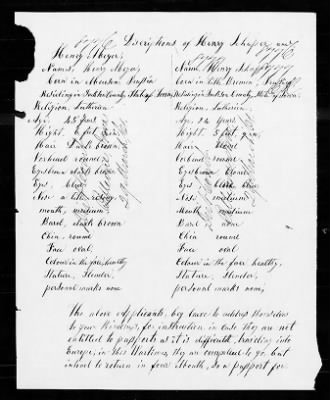 Discriptions of Henry Schaper and
Henry Meyer,
Name, Henry Meyer, Name Henry Schaper
born in Prussia born in Bremen
Residing in County State of Iowa, Residing in County, State of Iowa
Religion, Lutherin Religion, Lutherin
Age, 45 years Age, 24 years
Hight. 6 feet Hight. 5 feet, 9 in,
Hair Dark brown Hair blond
Forhead round Forhead round
Eyesbrown dark brown Eyesbrown blond
Eys blue Eys blue
Nose a little Nose medium
mouth, medium Mouth medium
Bard, dark brown Bard none
Chin round Chin round
Face oval Face oval,
Colour in the face, healthy Colour in the face healthy,
Stature, Slender, Stature, Slender,
personal marks none personal marks none,
The above Applicants, beg leave to address themselves
to your for instruction in case they are not
entitled to passports as it is difficult, traveling into
Europe, in this Wartime, they are compelled to go, but
intend to return in four Month, so a passport for